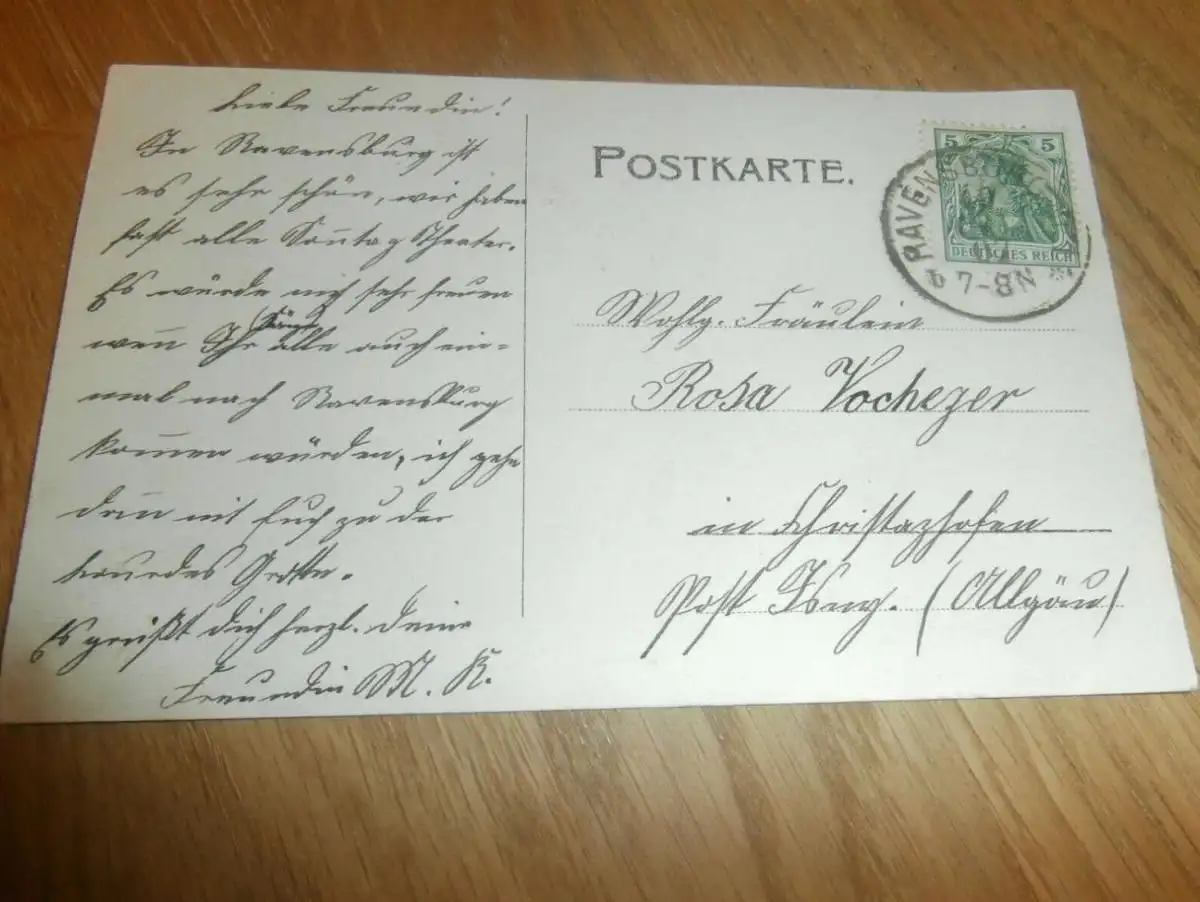 Liebe Freundin!
In Ravensburg ist
es sehr schön, wir haben
fast alle Sonntag Theater.
Es würde mich sehr freuen
wenn Ihr alle auch ein=
mal nach Ravensburg
kommen würden, ich gehe
dann mit Euch zu der
Lourdes Grotte.
Es grüßt Dich herzl. deine
Freundin M. K.
POSTKARTE.
5 5
DEUTSCHES REICH
RAVENSBURG
b 7-8N *
Wohlg. Fräulein
Rosa Vochezer
in Christazhofen
Post Isny. (Allgäu)